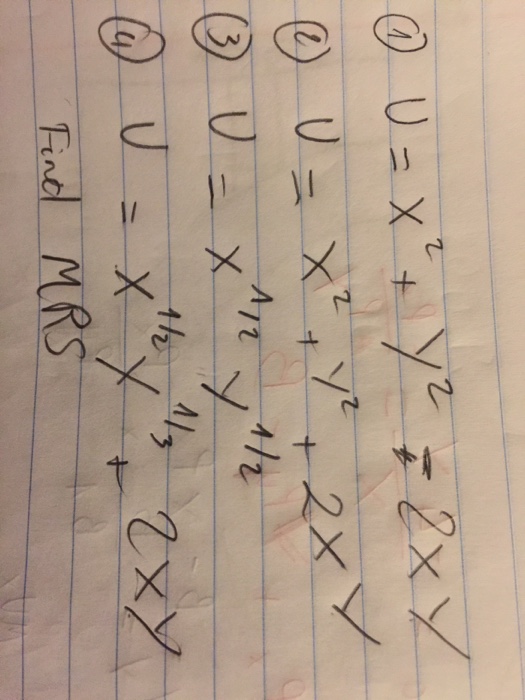 ① U = X² + Y² - 2XY
② U = X² + Y² + 2XY
③ U = X^1/2 Y^1/2
④ U = X^1/2 Y^1/3 + 2XY
Find MRS